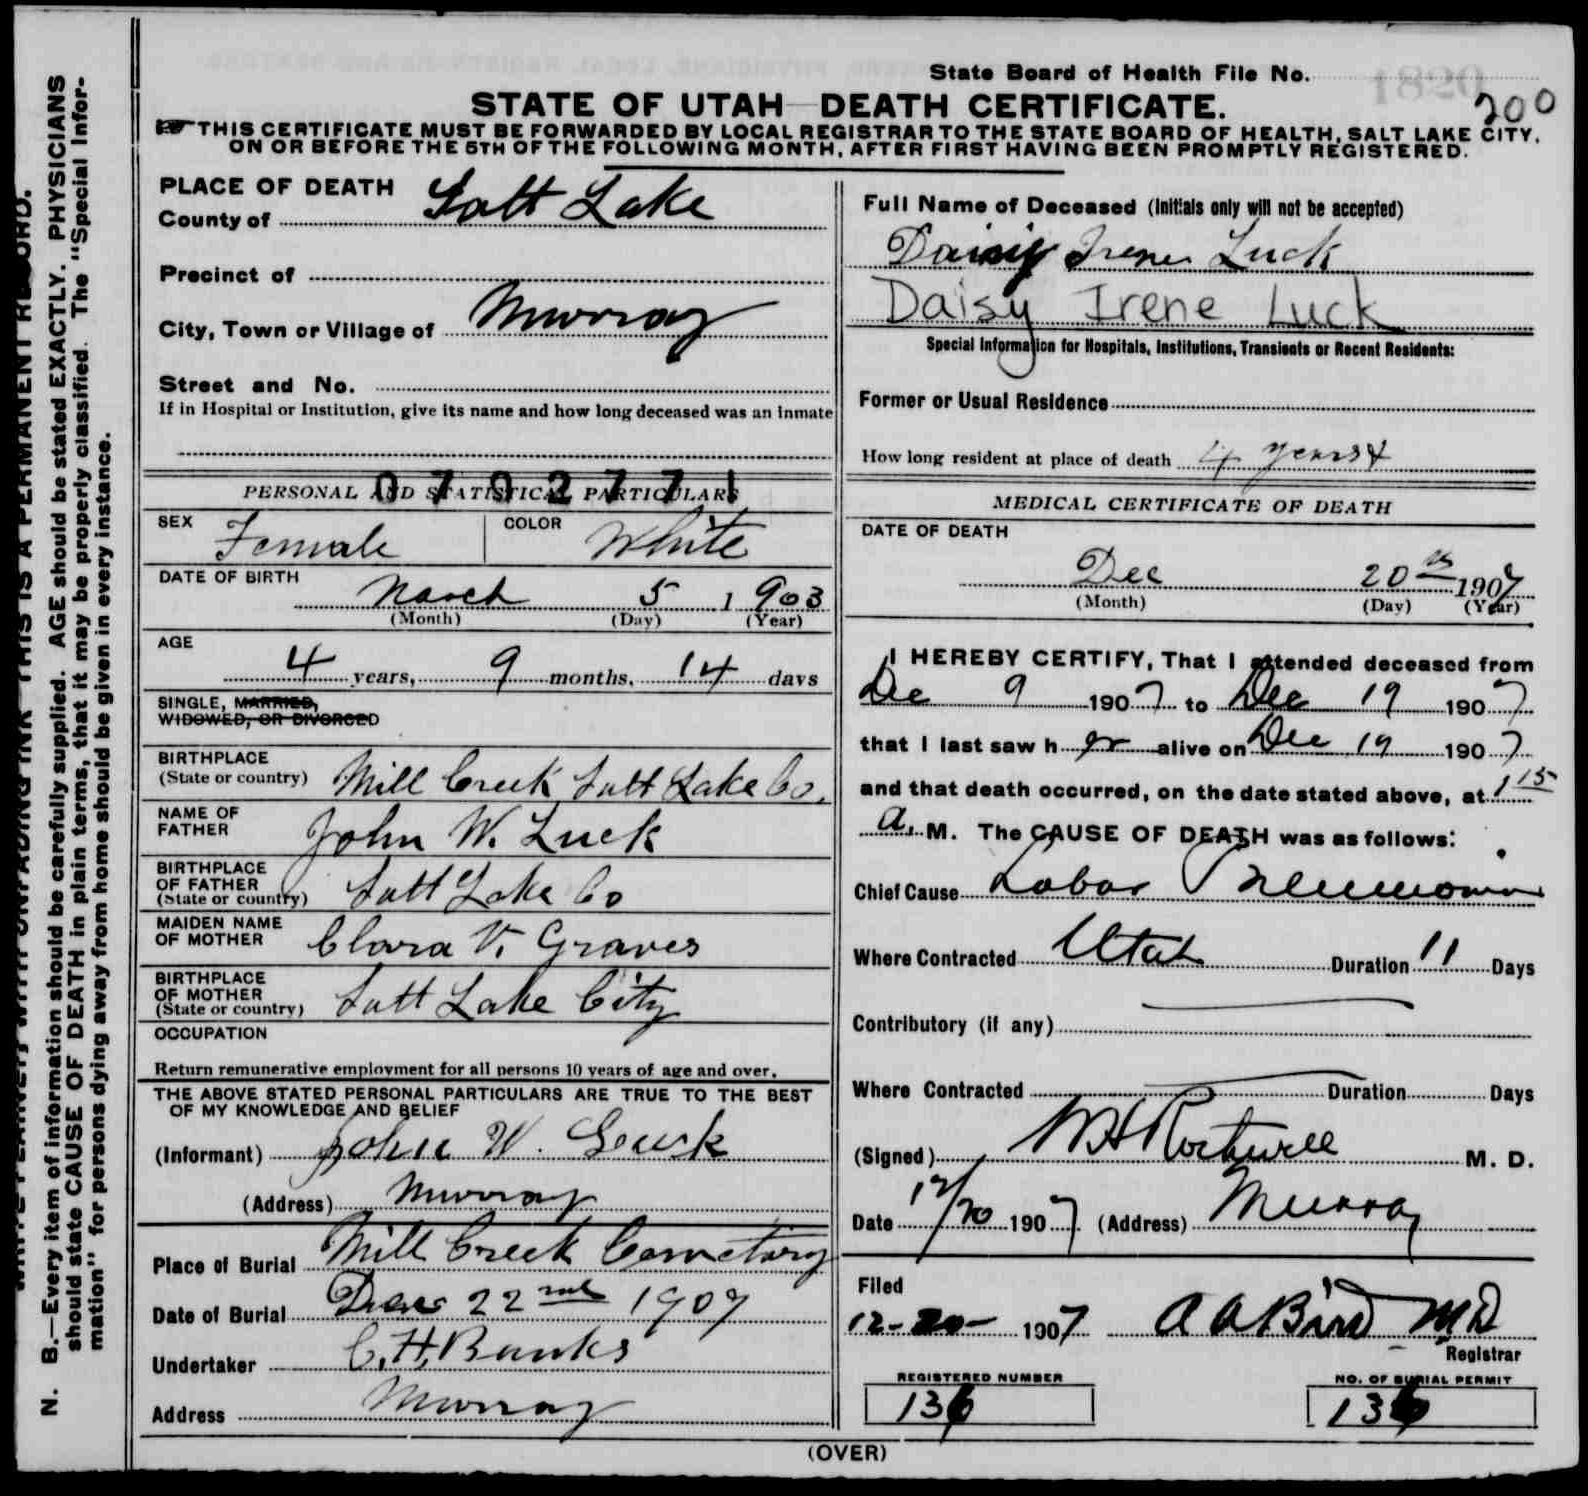 State Board of Health File No. 1820
200
STATE OF UTAH—DEATH CERTIFICATE.
THIS CERTIFICATE MUST BE FORWARDED BY LOCAL REGISTRAR TO THE STATE BOARD OF HEALTH, SALT LAKE CITY,
ON OR BEFORE THE 5TH OF THE FOLLOWING MONTH, AFTER FIRST HAVING BEEN PROMPTLY REGISTERED.
N. B.—Every item of information should be carefully supplied. AGE should be stated EXACTLY. PHYSICIANS
should state CAUSE OF DEATH in plain terms, that it may be properly classified. The "Special Infor-
mation" for persons dying away from home should be given in every instance.
PLACE OF DEATH
County of Salt Lake
Precinct of
City, Town or Village of Murray
Street and No.
If in Hospital or Institution, give its name and how long deceased was an inmate
0702771
PERSONAL AND STATISTICAL PARTICULARS
SEX Female COLOR White
DATE OF BIRTH
March 5 1903
(Month) (Day) (Year)
AGE
4 years, 9 months, 14 days
SINGLE, MARRIED,
WIDOWED, OR DIVORCED
BIRTHPLACE
(State or country) Mill Creek Salt Lake Co.
NAME OF
FATHER John W. Luck
BIRTHPLACE
OF FATHER
(State or country) Salt Lake Co
MAIDEN NAME
OF MOTHER Clara V. Graves
BIRTHPLACE
OF MOTHER
(State or country) Salt Lake City
OCCUPATION
Return remunerative employment for all persons 10 years of age and over.
THE ABOVE STATED PERSONAL PARTICULARS ARE TRUE TO THE BEST
OF MY KNOWLEDGE AND BELIEF
(Informant) John W. Luck
(Address) Murray
Place of Burial Mill Creek Cemetary
Date of Burial 22nd 1907
Undertaker C. H. Banks
Address Murray
Full Name of Deceased (Initials only will not be accepted)
Daisy Irene Luck
Daisy Irene Luck
Special Information for Hospitals, Institutions, Transients or Recent Residents:
Former or Usual Residence
How long resident at place of death 4 years
MEDICAL CERTIFICATE OF DEATH
DATE OF DEATH
Dec 20th 1907
(Month) (Day) (Year)
I HEREBY CERTIFY, That I attended deceased from
Dec 9 1907 to Dec 19 1907
that I last saw her alive on Dec 19 1907
and that death occurred, on the date stated above, at 1 15
a. M. The CAUSE OF DEATH was as follows:
Chief Cause Lobar Pneumonia
Where Contracted Utah Duration 11 Days
Contributory (if any)
Where Contracted Duration Days
(Signed) W H Rothwell M. D.
Date 12/20 1907 (Address) Murray
Filed
12-20- 1907 A A Bird MD
Registrar
REGISTERED NUMBER
136
NO. OF BURIAL PERMIT
136
(OVER)